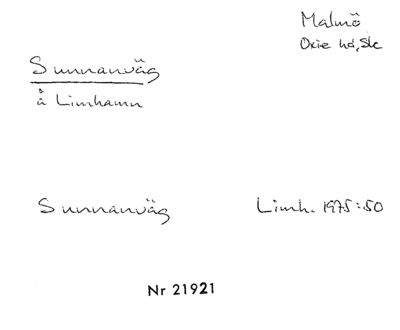 Malmö
Oxie hd, Sk
Sunnanväg
å Limhamn
Sunnanväg Limh. 1975:50
Nr 21921